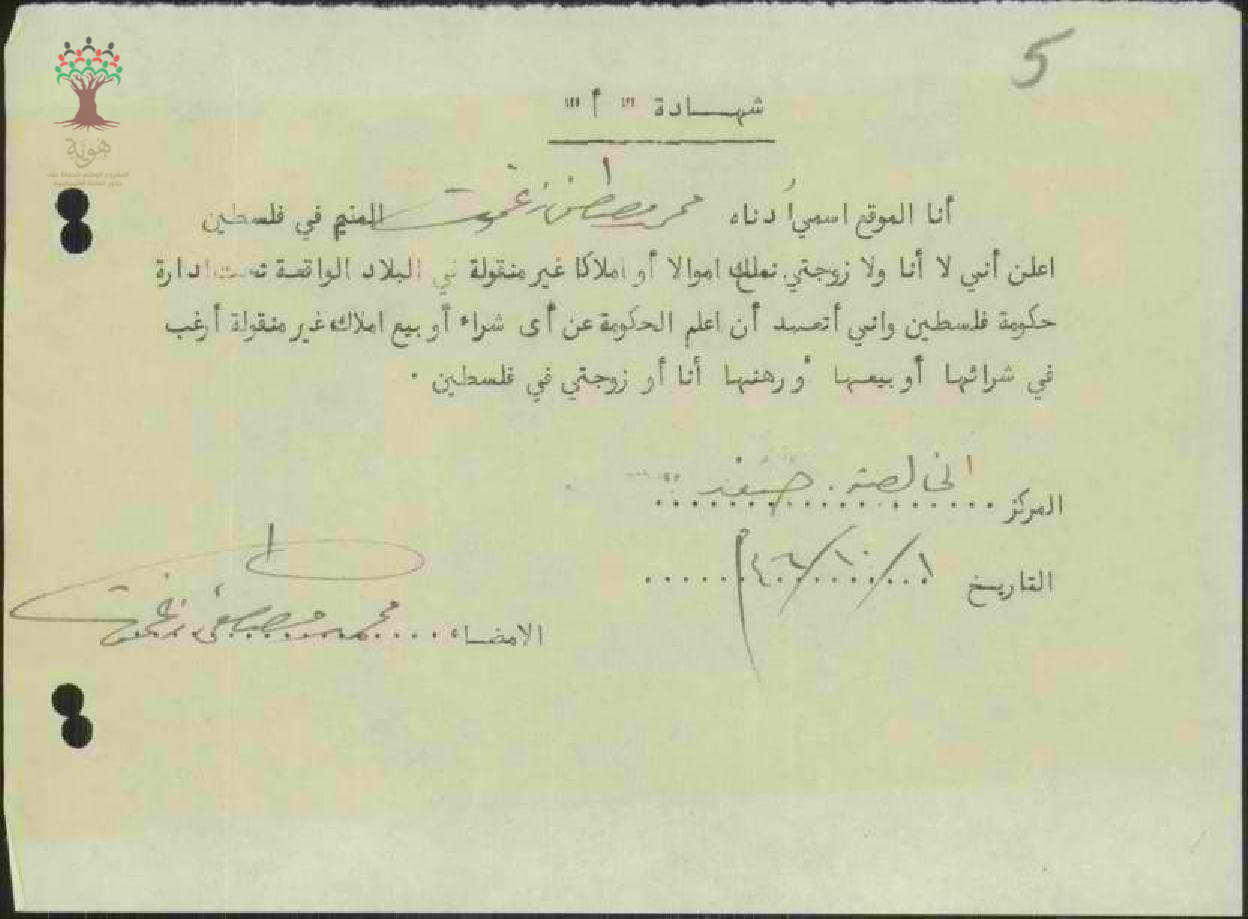 5
هوية
المشروع الوطني للحفاظ على
جذور العائلة الفلسطينية
شهادة "أ"
أنا الموقع اسمي أدناه محمد مصطفى زغموت المقيم في فلسطين
اعلن أنني لا أنا ولا زوجتي نملك اموالا أو املاكا غير منقولة في البلاد الواقعة تحت ادارة
حكومة فلسطين وانني أتعهد أن اعلم الحكومة عن أى شراء أو بيع املاك غير منقولة أرغب
في شرائها أو بيعها أو رهنها أنا أو زوجتي في فلسطين .
المركز الخالصة . صفد
التاريخ ١/١٠/٤٦
الامضاء محمد مصطفى زغموت